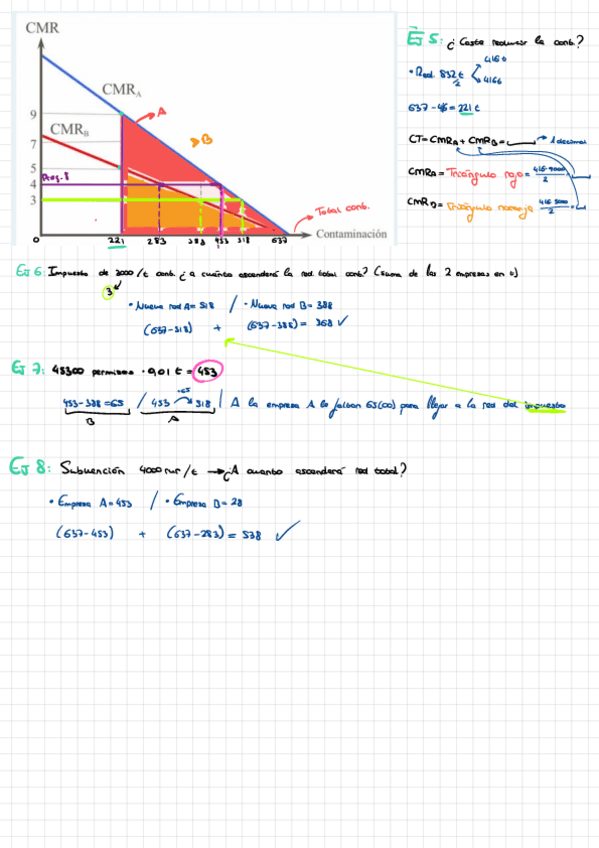 CMR
CMR_A
A
B
9
CMR_B
7
5
Preg. 8
4
3
Total cont.
0
221
283
388
453
518
637
Contaminación
Ej 5: ¿Coste reducir la cont.?
• Red. 832 t
2
416 A
416 B
637-416 = 221 t
CT = CMR_A + CMR_B = 1 decimal
CMR_A = Triángulo rojo = 416·9000
2
CMR_B = Triángulo naranja 416·5000
2
Ej 6: Impuesto de 3000/t cont. ¿a cuánto ascenderá la red. total cont? (suma de las 2 empresas en t)
3
• Nueva red A = 518 / • Nueva red B = 388
(637-518) + (637-388) = 368 ✓
Ej 7: 45300 permisos · 0,01 t = 453
453-388 = 65 / 453 518 | A la empresa A le faltan 65(00) para llegar a la red del impuesto
+65
B
A
Ej 8: Subvención 4000 eur/t → ¿A cuanto ascenderá red total?
• Empresa A = 453 / • Empresa B = 28
(637-453) + (637-283) = 538 ✓